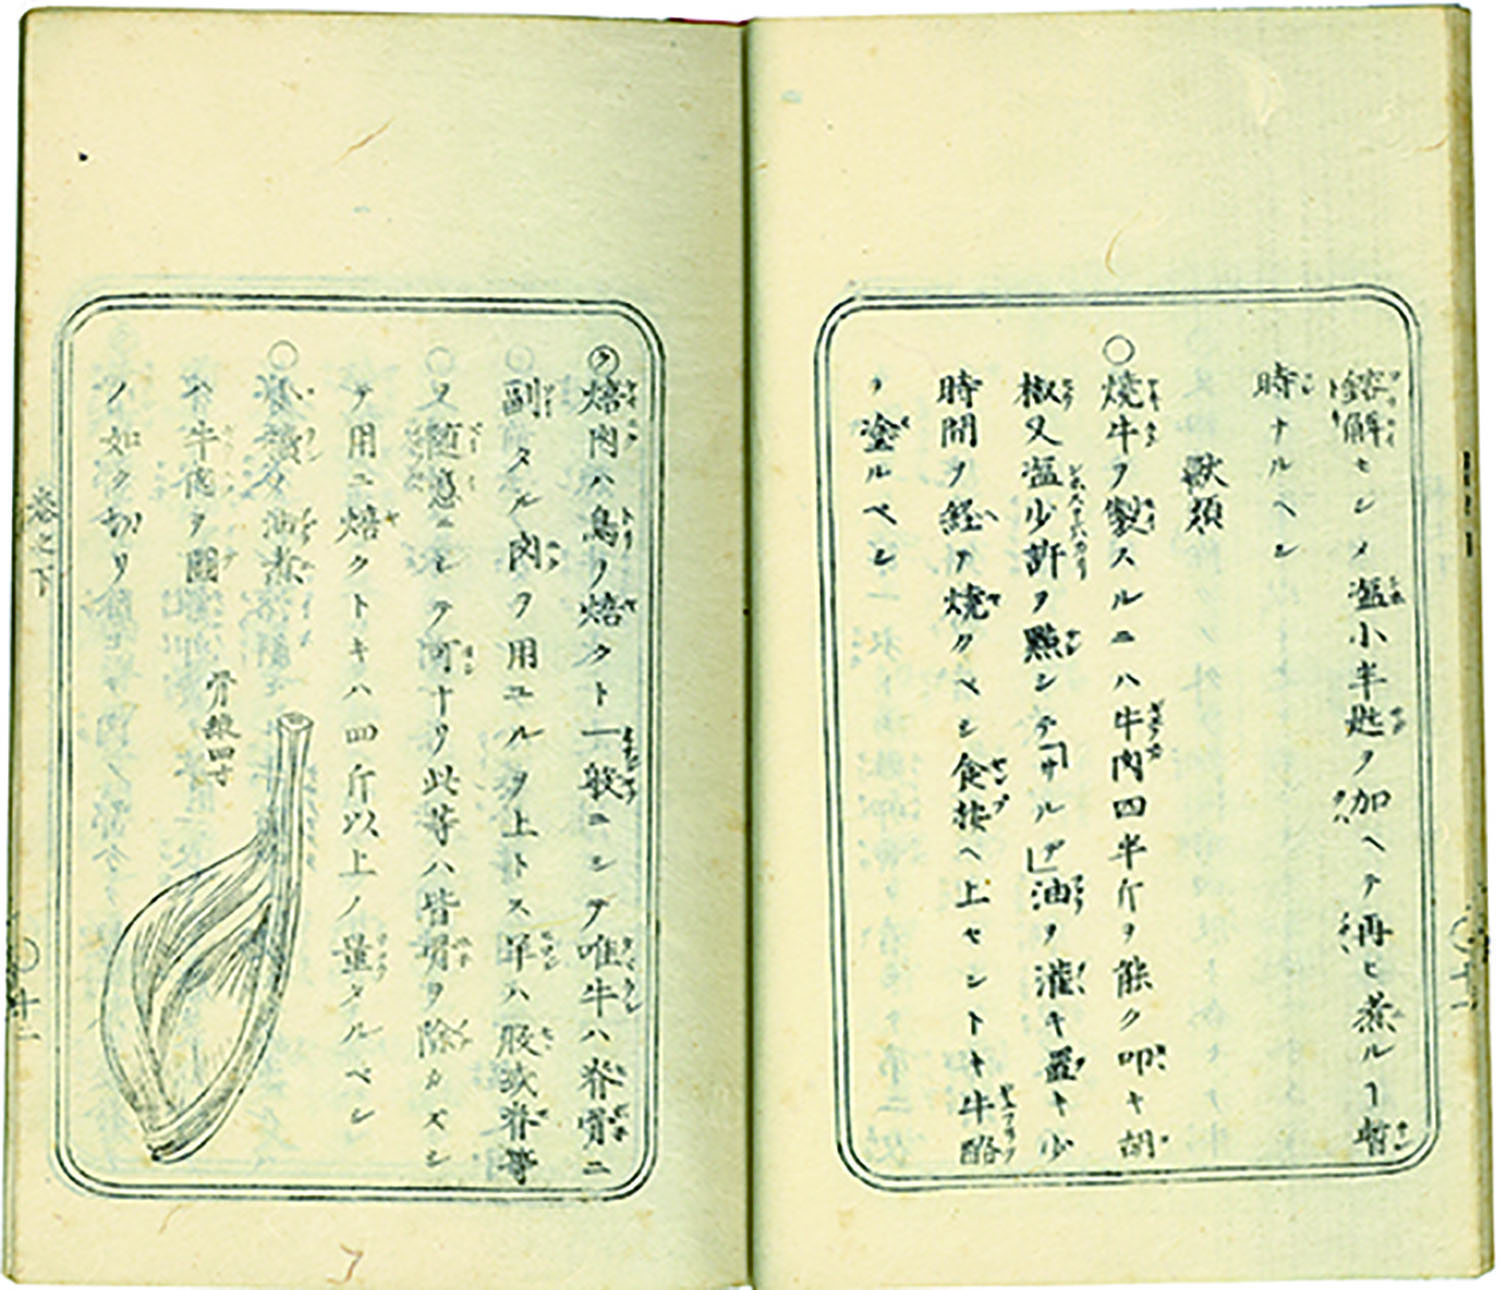 鎔解セシメ塩小半匙ヲ加ヘテ再ヒ煮ルー暫
時ナルヘシ
獣類
○焼牛ヲ製スルニハ牛肉四半斤ヲ能ク叩キ胡
椒又塩少許ヲ點シテ「サルデ」油ヲ灌キ置キ少
時間ヲ経テ焼クベシ食按ヘ上セントキ牛酪
ヲ塗ルベシ
焙肉ハ鳥ノ焙クト一般ニシテ唯牛ハ脊骨ニ
副タル肉ヲ用ユルヲ上トス ハ股或脊等
又随意ニシテ可ナリ此等ハ皆 ヲ除カズシ
テ用ニ焙クトキハ四斤以上ノ量タルベシ
○ 油煮
牛 ヲ圖
ノ如ク切リ
骨
巻之下
○十一
○十一